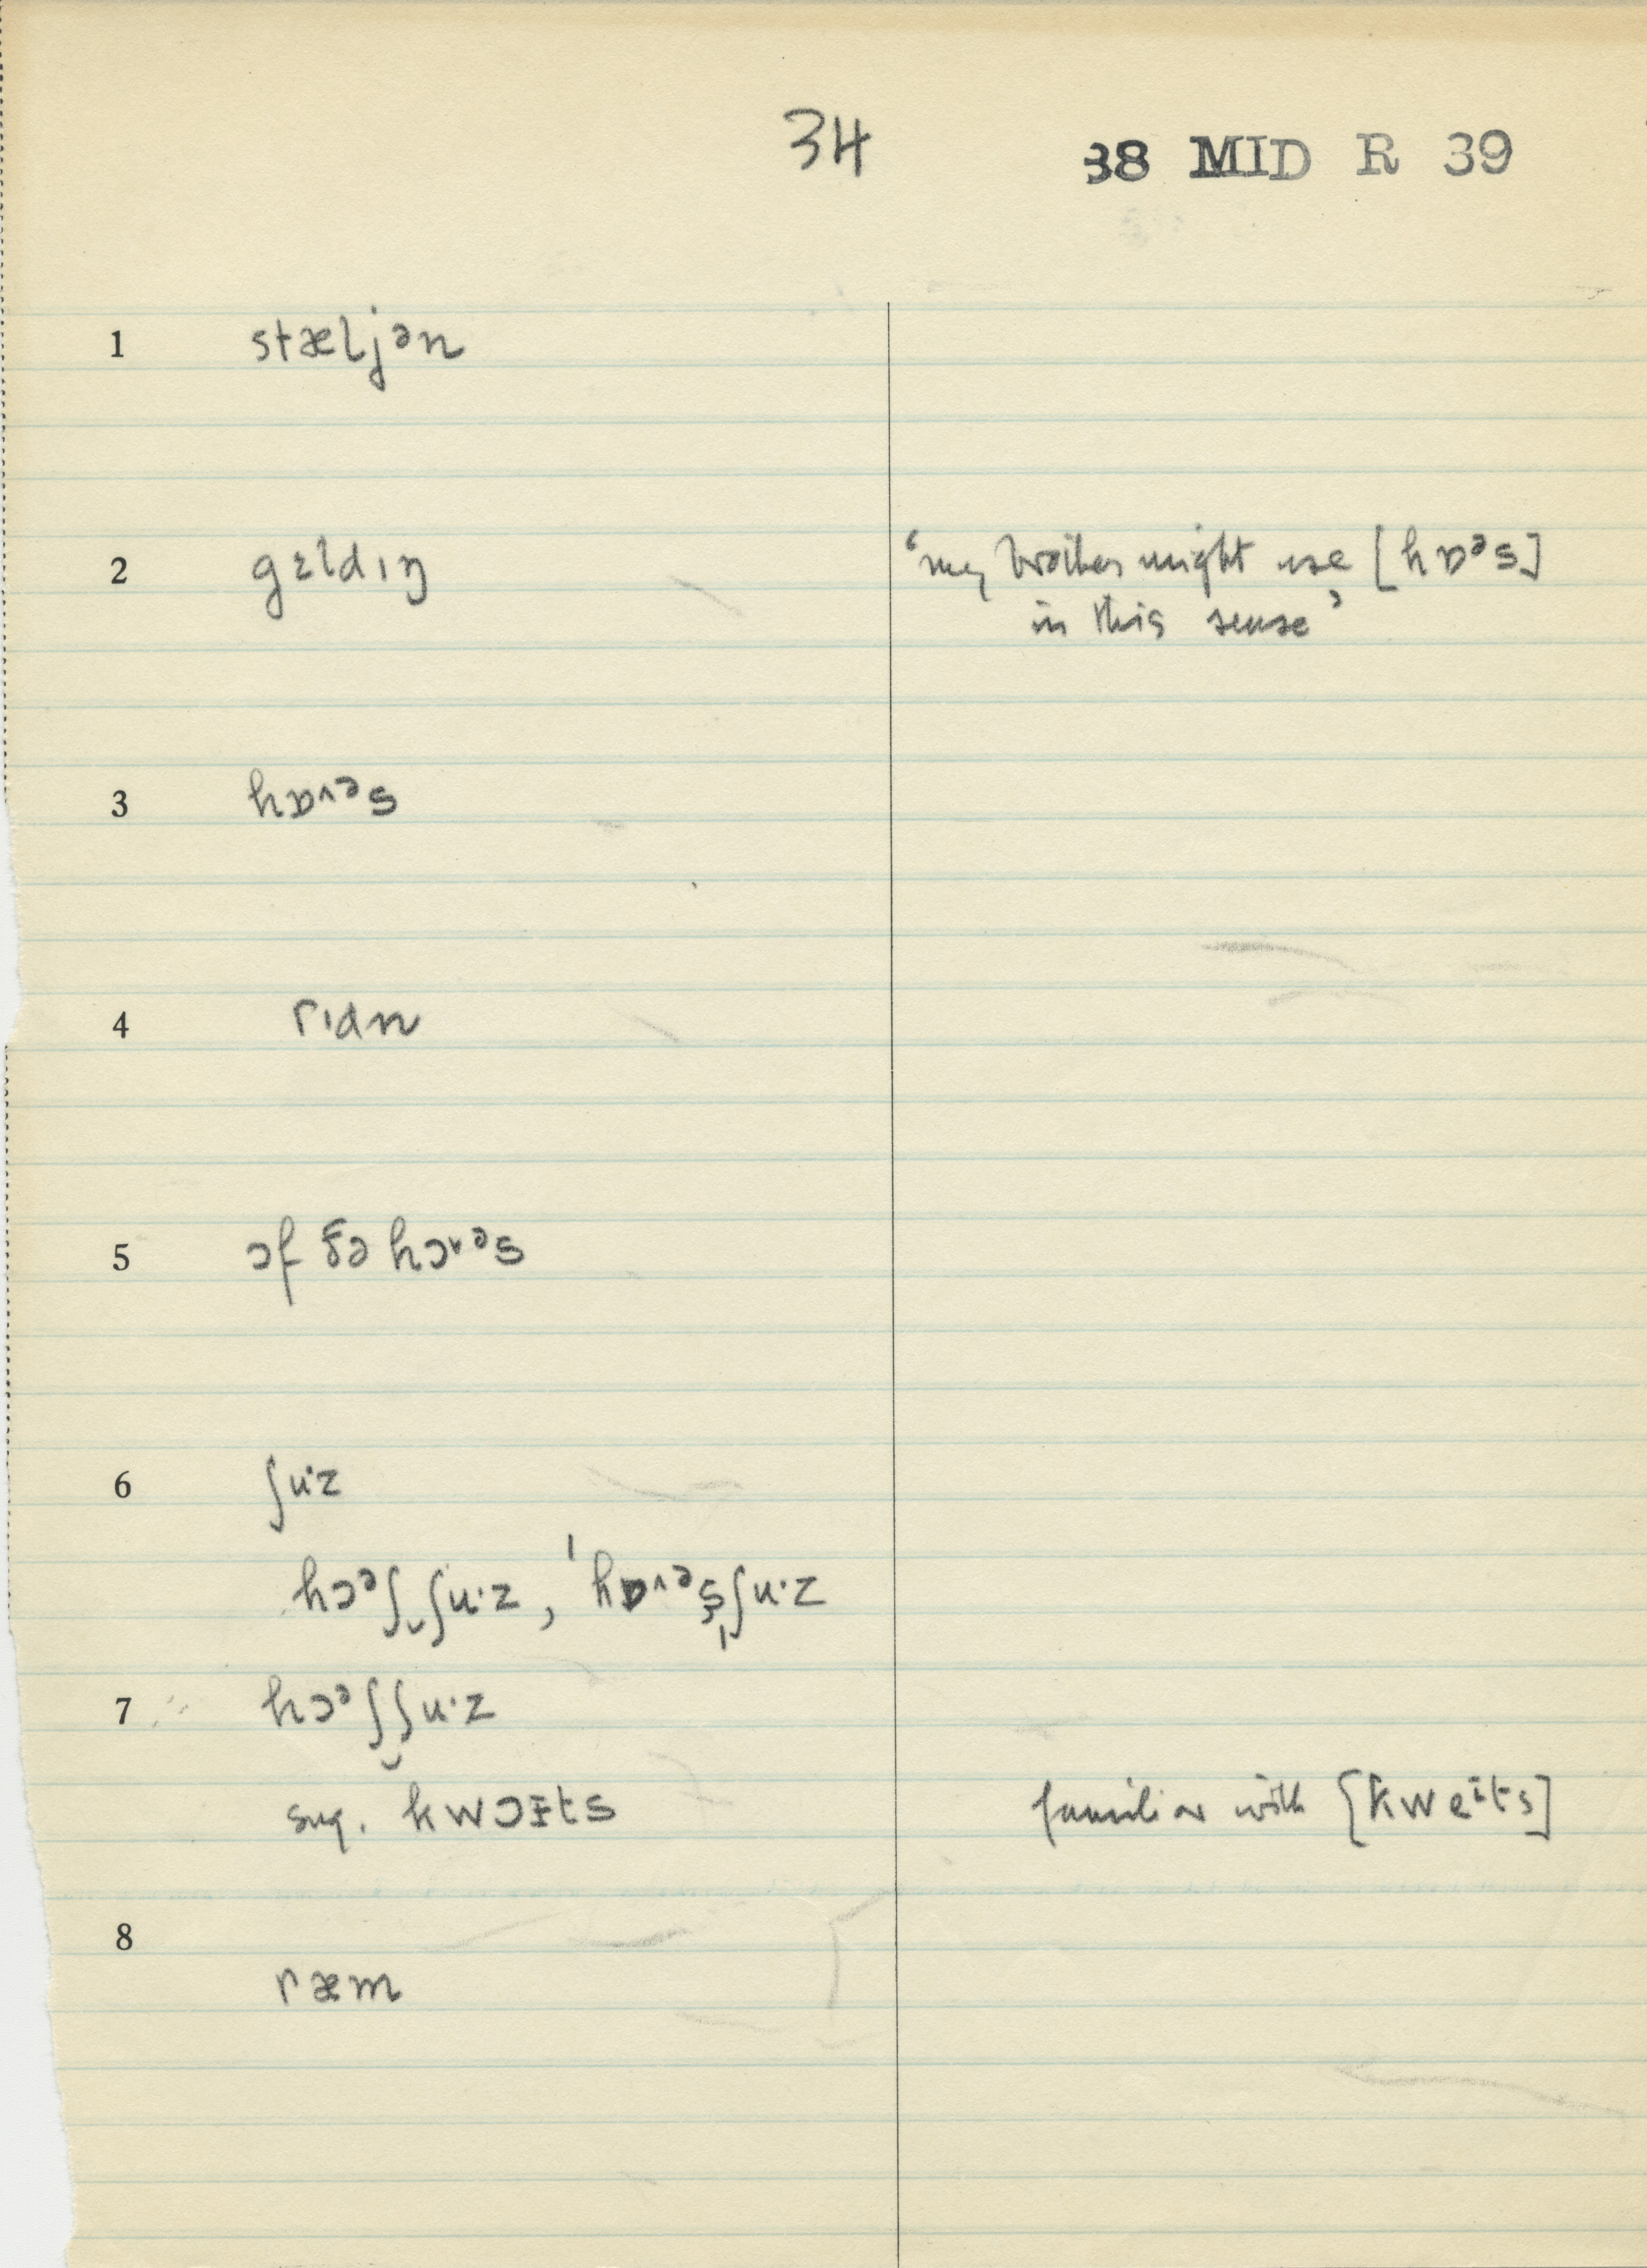 34 38 MID R 39
1 stæljən
2 gɛldıŋ ‘my brother might use [hɒᵊs]
in this sense’
3 hɒ˄ᵊs
4 rıdn
5 ɔf ðə hɔ˅ᵊs
6 ʃu·z
hɔᵊʃ‿ʃu·z, ˈhɒ˄ᵊs̩ʃu·z
7 hɔᵊʃ‿ʃu·z
sug. kwɔɪts familiar with [kweɪts]
8
ræm